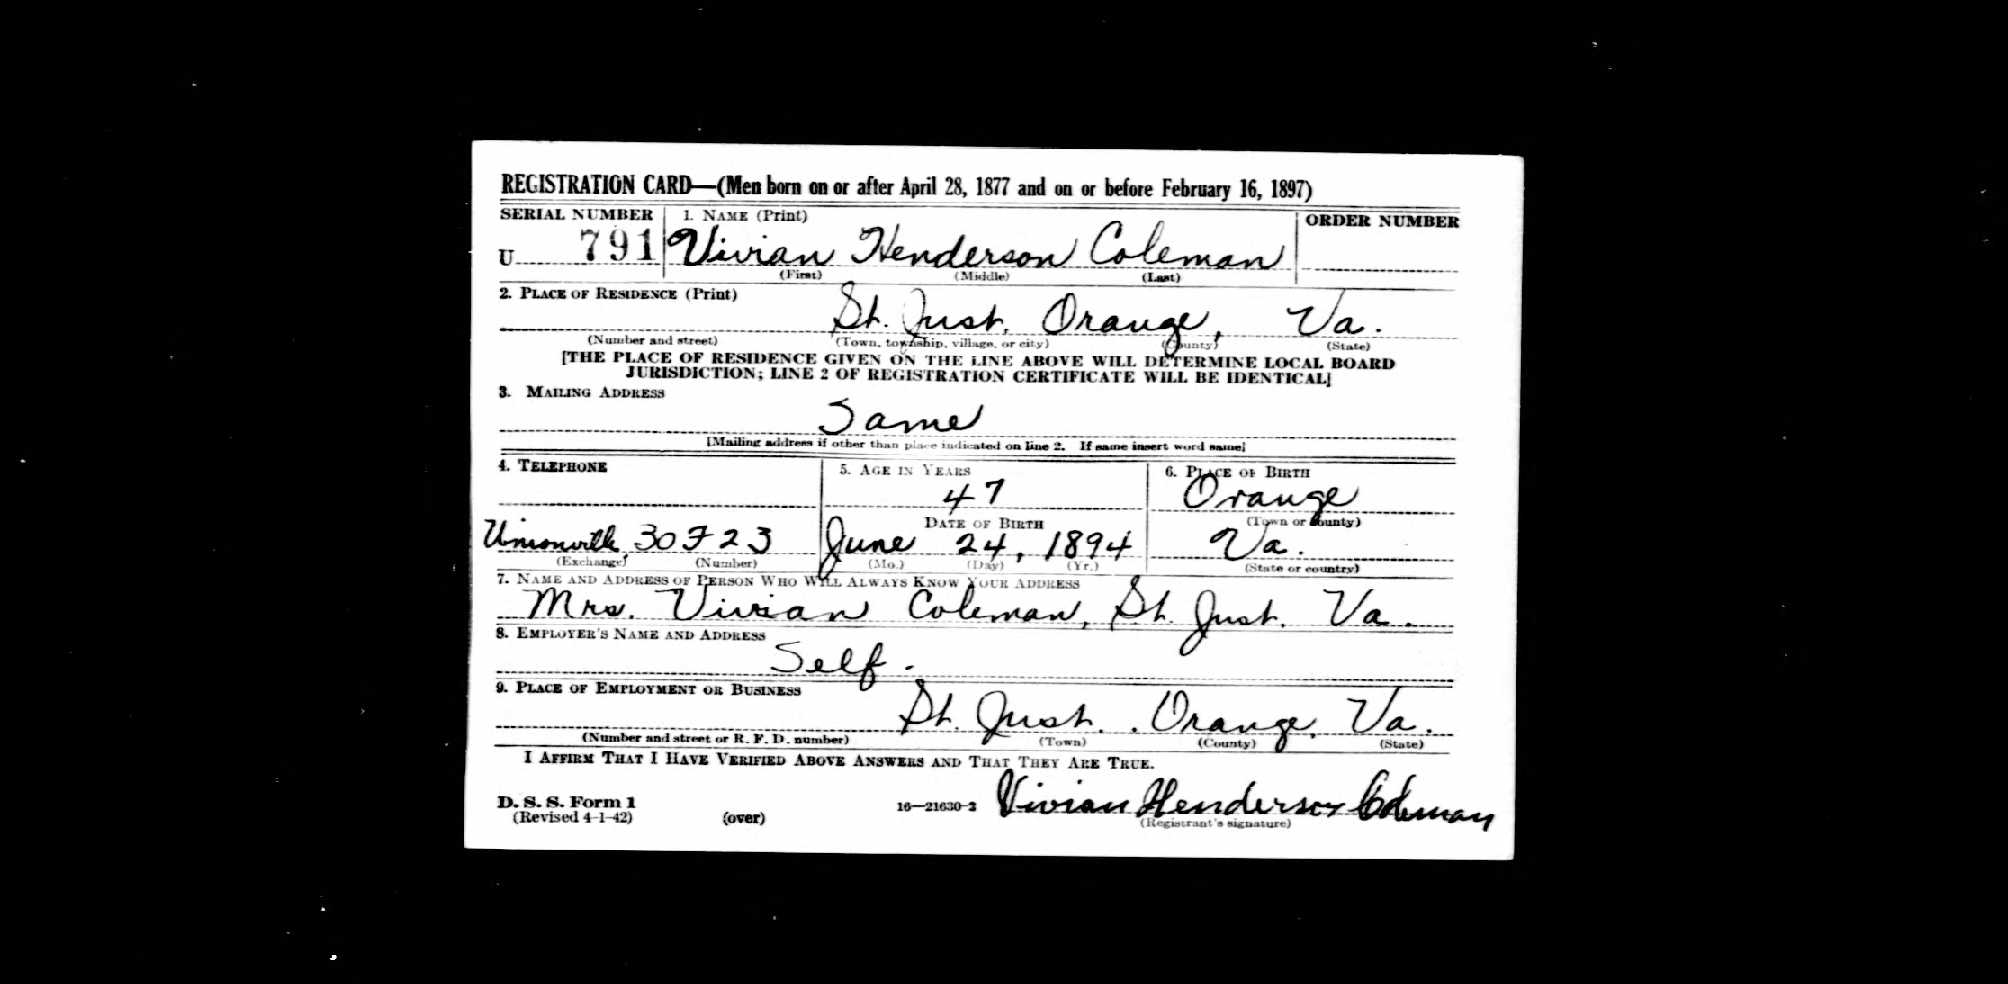 REGISTRATION CARD—(Men born on or after April 28, 1877 and on or before February 16, 1897)
SERIAL NUMBER 1. NAME (Print) ORDER NUMBER
U 791 Vivian Henderson Coleman
(First) (Middle) (Last)
2. PLACE OF RESIDENCE (Print)
St. Just, Orange, Va.
(Number and street) (Town, township, village, or city) (County) (State)
[THE PLACE OF RESIDENCE GIVEN ON THE LINE ABOVE WILL DETERMINE LOCAL BOARD
JURISDICTION; LINE 2 OF REGISTRATION CERTIFICATE WILL BE IDENTICAL]
3. MAILING ADDRESS
Same
[Mailing address if other than place indicated on line 2. If same insert word same]
4. TELEPHONE 5. AGE IN YEARS 6. PLACE OF BIRTH
47 Orange
DATE OF BIRTH (Town or county)
Unionville, 30F23 June 24, 1894 Va.
(Exchange) (Number) (Mo.) (Day) (Yr.) (State or country)
7. NAME AND ADDRESS OF PERSON WHO WILL ALWAYS KNOW YOUR ADDRESS
Mrs. Vivian Coleman, St. Just, Va.
8. EMPLOYER'S NAME AND ADDRESS
Self.
9. PLACE OF EMPLOYMENT OR BUSINESS
St. Just. Orange, Va.
(Number and street or R. F. D. number) (Town) (County) (State)
I AFFIRM THAT I HAVE VERIFIED ABOVE ANSWERS AND THAT THEY ARE TRUE.
D. S. S. Form 1 16—21630-2 Vivian Henderson Coleman
(Revised 4-1-42) (over) (Registrant's signature)